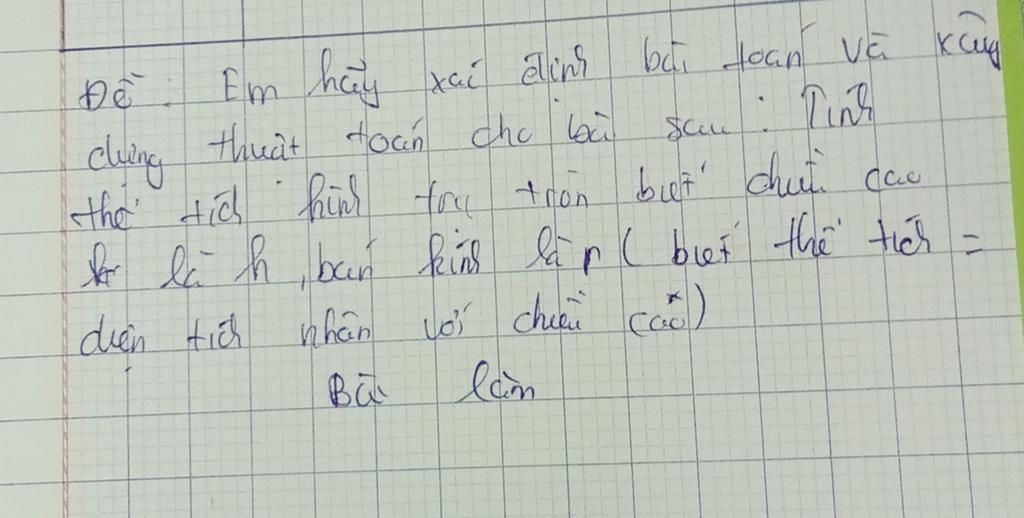 Đề: Em hãy xác định bài toán và xây
dựng thuật toán cho bài sau: Tính
thể tích hình trụ tròn biết chiều cao
là h, bán kính là r ( biết thể tích =
diện tích nhân với chiều cao)
Bài làm